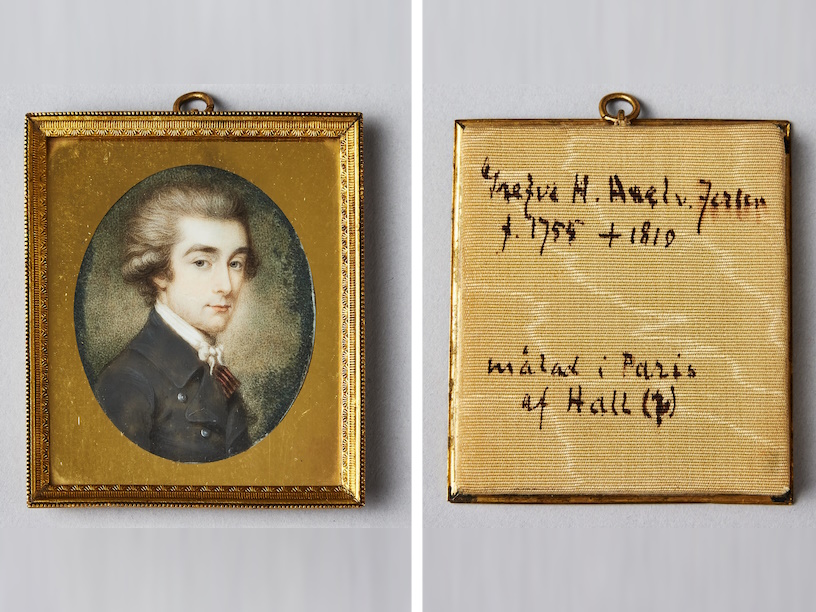 Grefve H. Axel v. Fersen
f. 1755 + 1810
målad i Paris
af Hall (?)